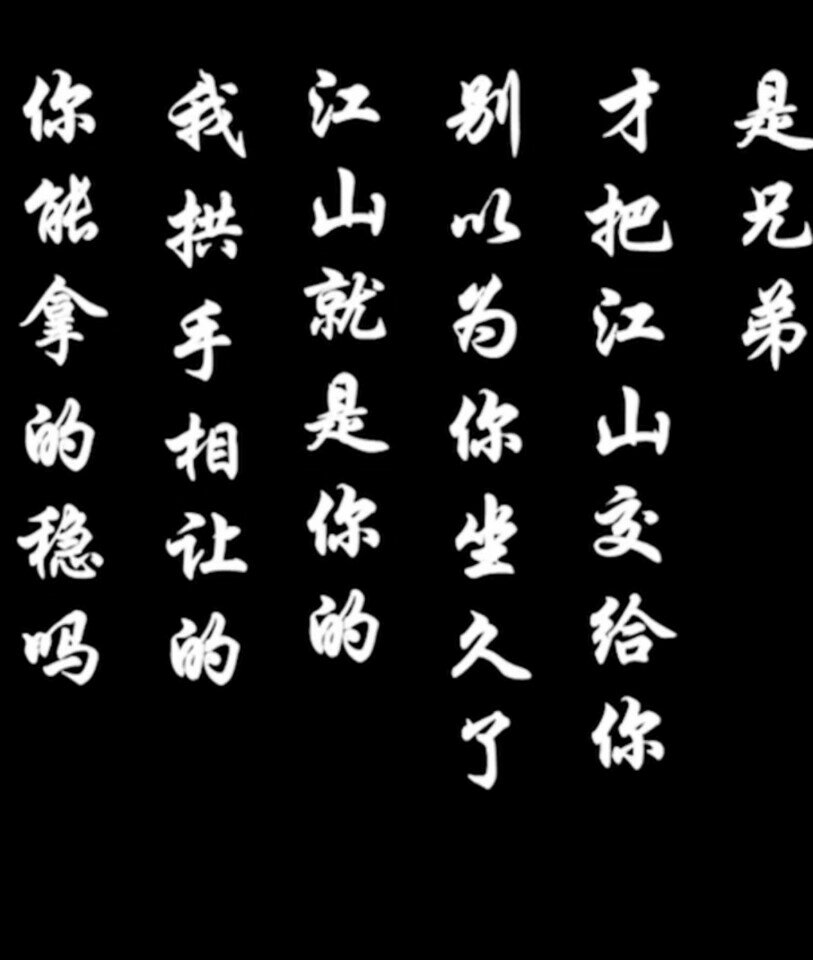 是兄弟
才把江山交给你
别以为你坐久了
江山就是你的
我拱手相让的
你能拿的稳吗